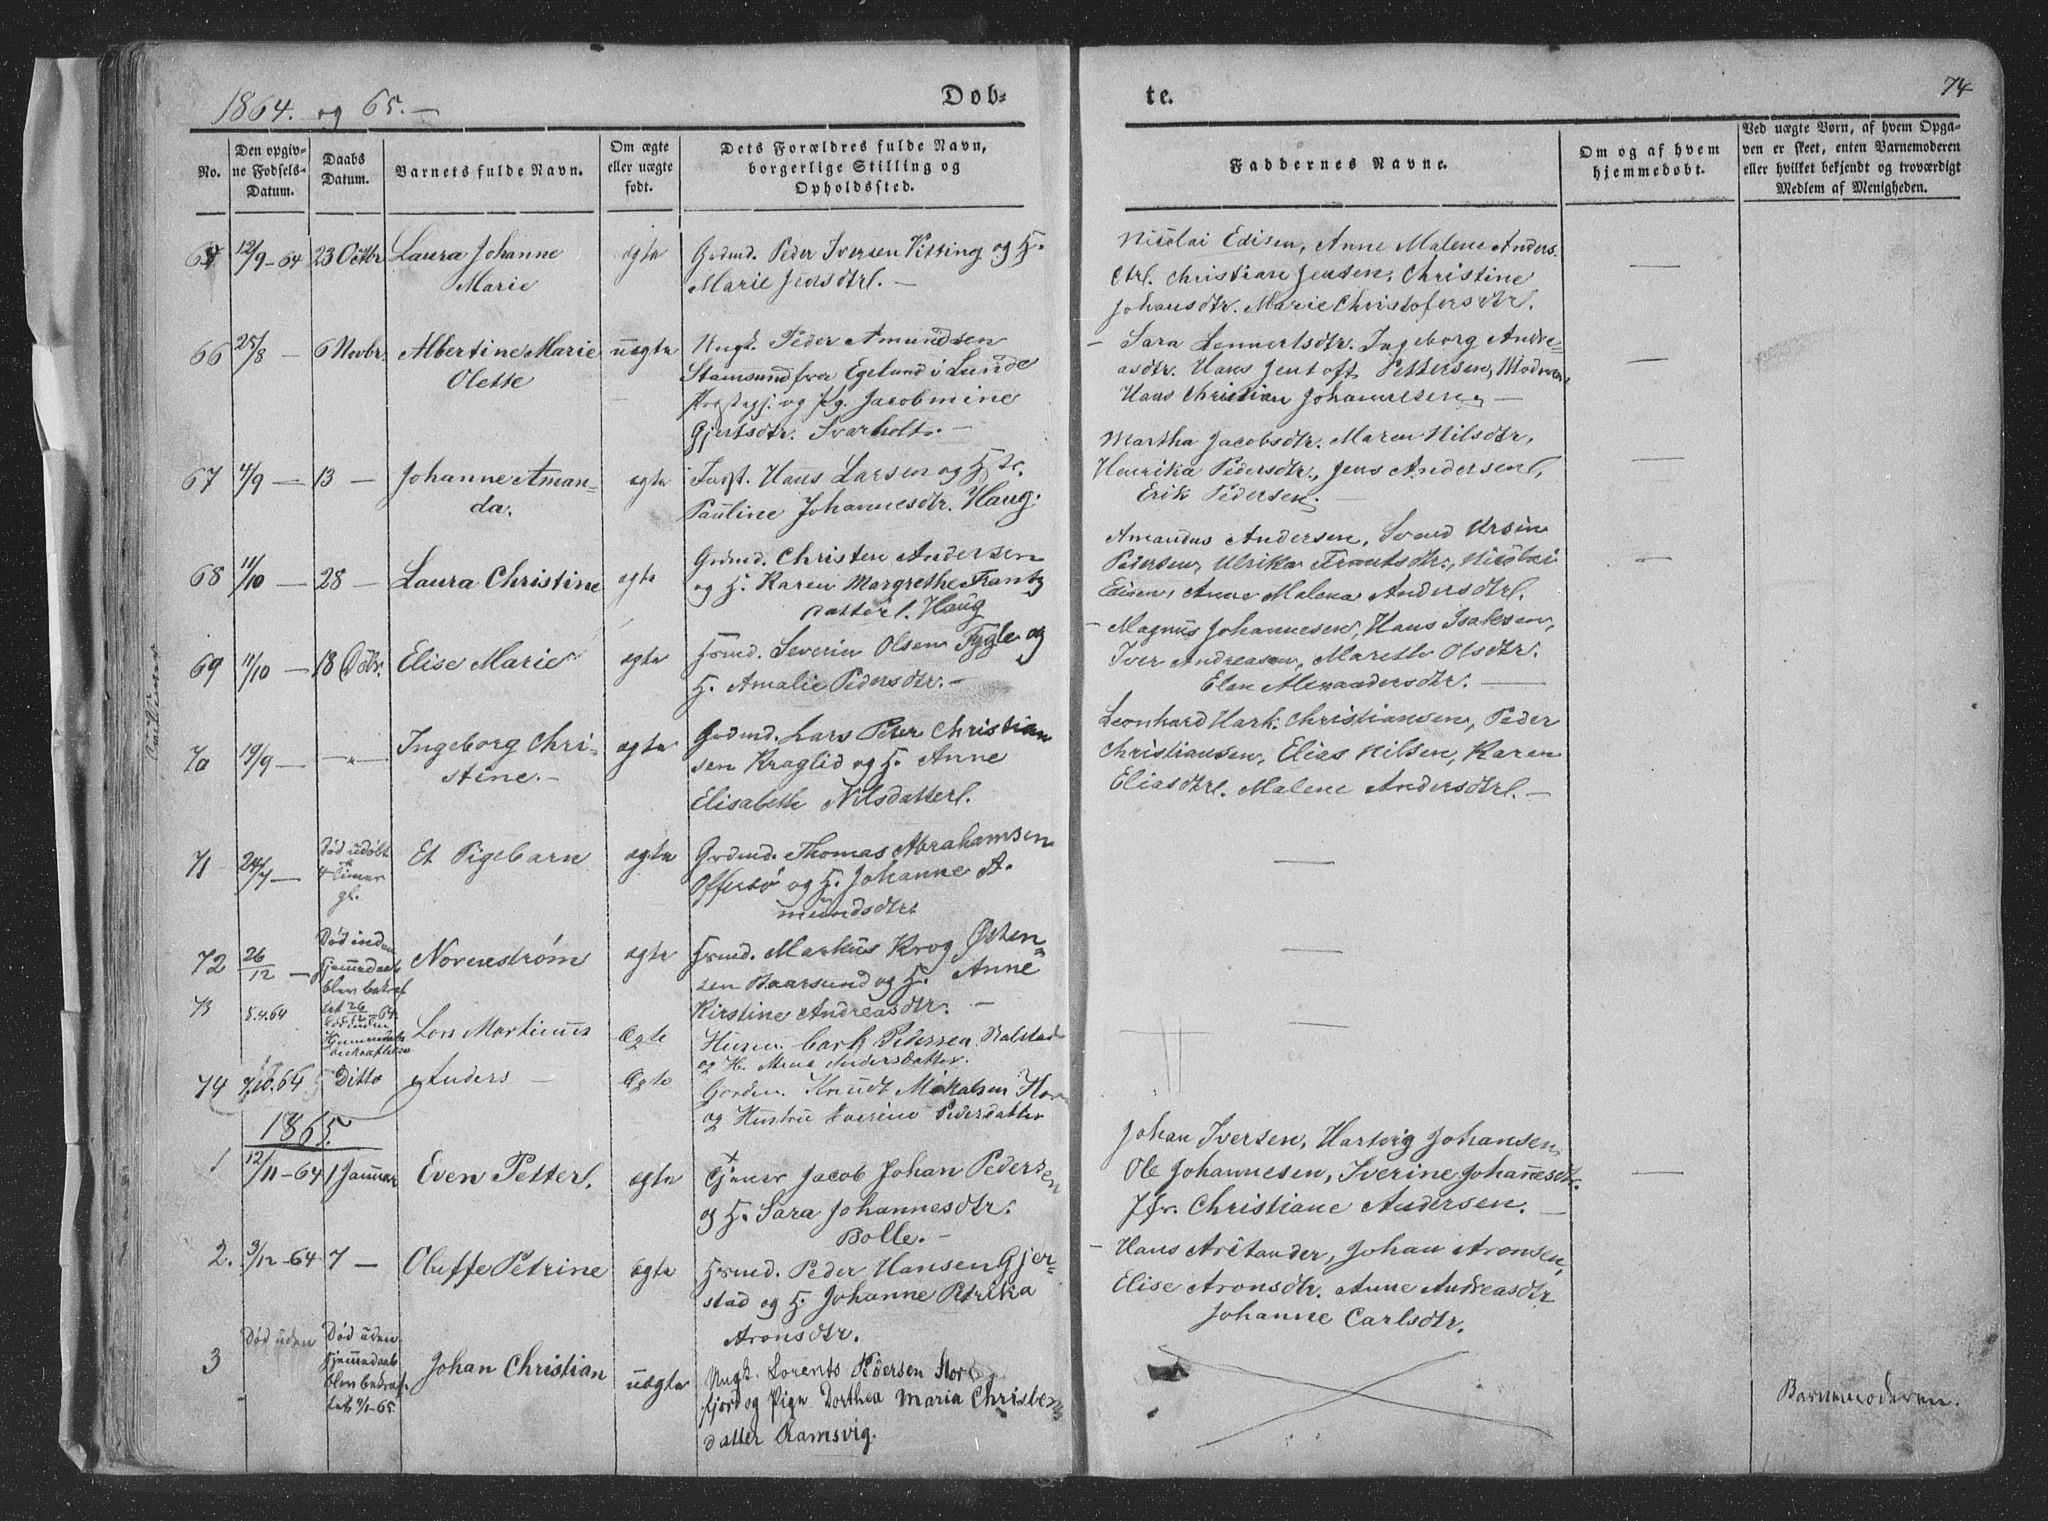 1864. og 65. —
Døb-
te.
74
No.
Den opgiv-
ne Fødsels-
Datum.
Daabs
Datum.
Barnets fulde Navn.
Om ægte
eller uægte
født.
Dets Forældres fulde Navn,
borgerlige Stilling og
Opholdssted.
Faddernes Navne.
Om og af hvem
hjemmedøbt.
Ved uægte Børn, af hvem Opga-
ven er skeet, enten Barnemoderen
eller hvilket bekjendt og troværdigt
Medlem af Menigheden.
12/9-64 23 Octbr
Laura Johanne
Marie
ægte
Grdmd. Peder Iversen Vitting og H.
Marie Jensdtr. —
Nicolai Edisen, Anne Malene Anders-
dtr. Christian Jensen, Christine
Johansdtr. Marie Christofersdtr.
—
66 25/8 — 6 Novbr.
Albertine Marie
Olette
uægte
Ungk. Peder Amundsen
Stamsund fra Egelund i Lunde
Præstegj. og Pg. Jacobmine
Gjertsdtr. Svarholt. —
— Sara Lennertsdtr. Ingeborg Andre-
asdtr. Hans Jentoft Pettersen, Moderen
Hans Christian Johannesen. —
—
67 4/9 — 13 —
Johanne Aman-
da.
ægte
Indst. Hans Larsen og Hst.
Pauline Johannesdtr. Haug.
Martha Jacobsdtr. Maren Nilsdtr,
Henrika Pedersdtr., Jens Andersen,
Erik Pedersen. —
—
68 11/10 — 28 —
Laura Christine
ægte
Grdmd. Christen Andersen
og H. Karen Margrethe Frantz
datter. Haug
Amandus Andersen, Svend Ursin
Pedersen, Ulrika Frantsdtr., Nicolai
Edisen, Anne Malena Andersdtr.
—
69 11/10 — 18 Decbr.
Elise Marie
ægte
Hsmd. Severin Olsen Fygle og
H. Amalie Pedersdtr. —
— Magnus Johannesen, Hans Isaksen,
Iver Andreasen, Marethe Olsdtr.
Elen Alexandersdtr. —
70 19/9 — —"—
Ingeborg Chri-
stine. —
ægte
Grdmd. Lars Peter Christian
sen Kraglid og H. Anne
Elisabeth Nilsdatter.
Leonhard Hark. Christiansen, Peder
Christiansen, Elias Nilsen, Karen
Eliasdtr. Malene Andersdtr. —
71 24/7 —
Død udøbt
4 timer
gl.
Et Pigebarn
ægte
Grdmd. Thomas Abrahamsen
Offersø og H. Johanne A-
mundsdtr.
—
72 26/12 —
Død inden
Hjemmedaab
blev bekræf
tet 26/12-64.
Norenstrøm
ægte
Hsmd. Markus Krog Østen-
sen Baarsund og H. Anne
Kirstine Andreasdtr. —
—
73 5.4.64
Død inden
Hjemmedaab
bekræftelse
Lars Martinus
Ægte
Husm. Carl Pedersen Balstad
og H. Mena Andersdatter.
—
74 7.10.64 Ditto
Anders —
Ægte
Gordm. Knudt Mikalsen Hov
og Hustru Iverine Pedersdatter
1865.
1 12/11-64 1 Januar
Even Petter.
ægte
Gjener Jacob Johan Pedersen
og H. Sara Johannesdtr.
Bolle. —
Johan Iversen, Hartvig Johansen,
Ole Johannesen, Iverine Johannesdtr.
Jfr. Christiane Andersen. —
—
2. 3/12-64 7 —
Oluffe Petrine
ægte
Hsmd. Peder Hansen Gjer-
stad og H. Johanne Petrika
Aronsdtr.
— Hans Aritander, Johan Aronsen,
Elise Aronsdtr. Anne Andreasdtr
Johanne Carlsdtr.
3 Død uden
Død uden
Hjemmedaab
blev bekræf
tet 1/1-65.
Johan Christian
uægte
Ungk. Lorents Pedersen Stor
fjord og Pige Dorthea Maria Christens
datter Ramsvig.
Barnemoderen.